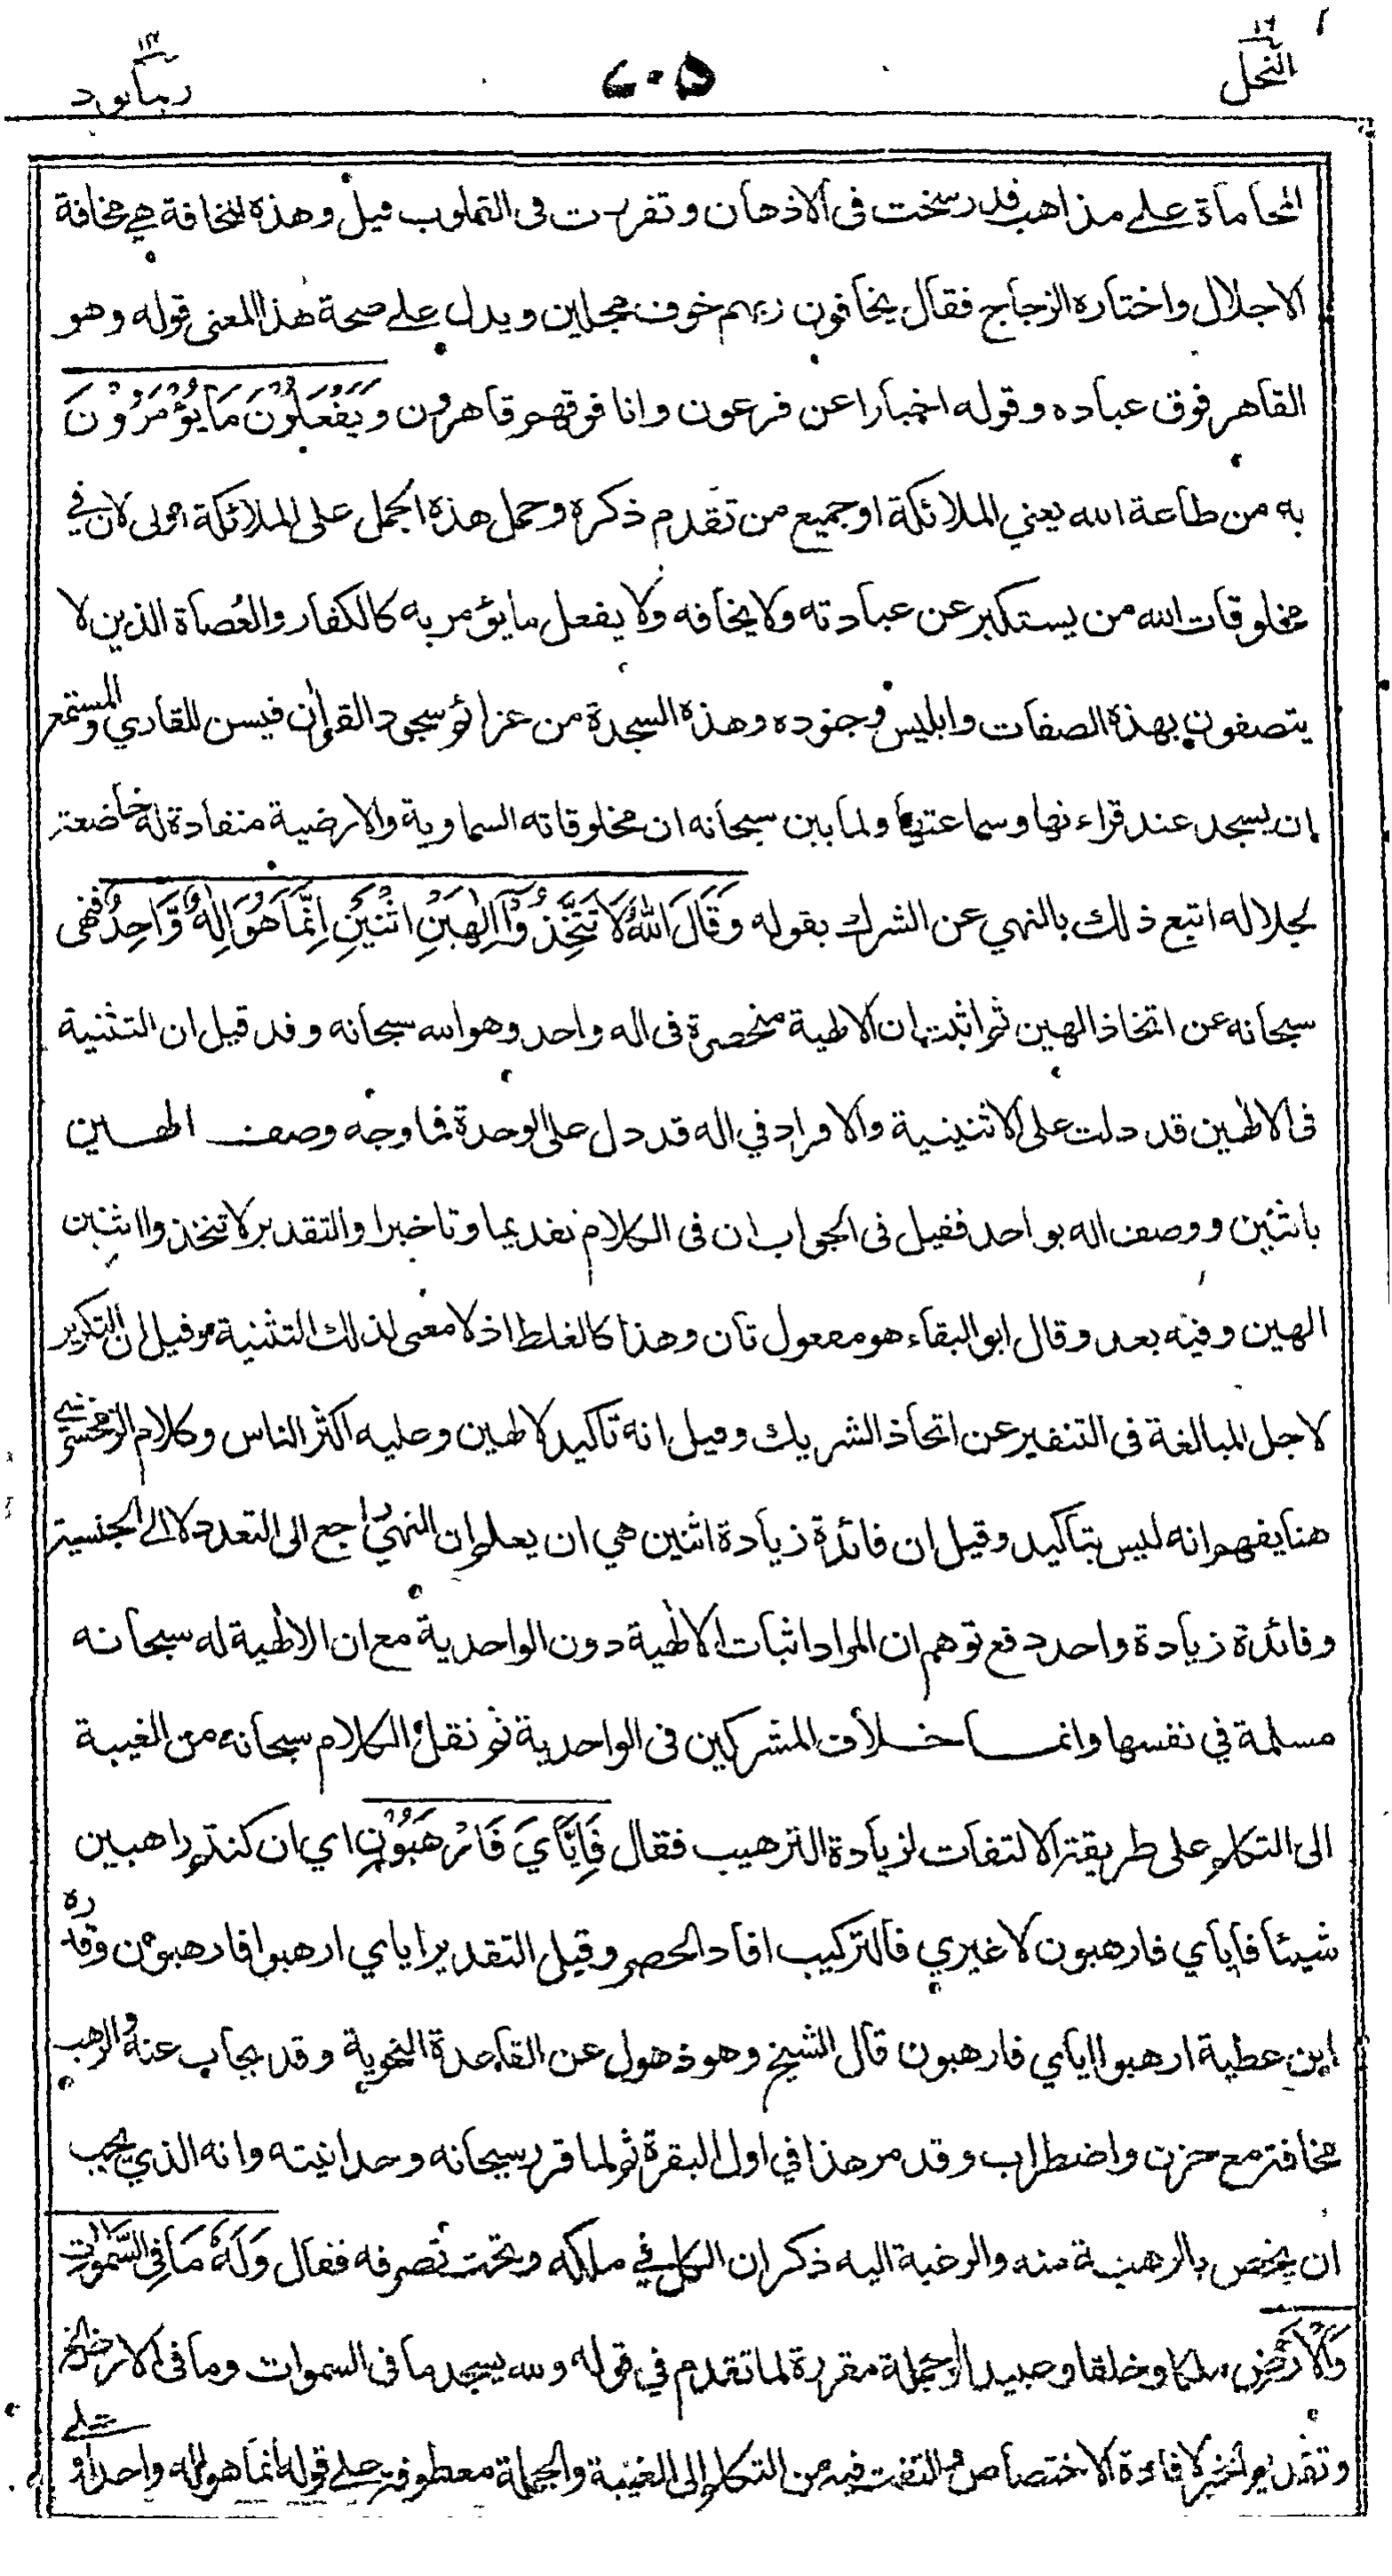 النحل ١٦
٧٠٥
ربما يود ١٤
المحاماة على مذاهب قد رسخت فى الاذهان وتقررت فى القلوب قيل وهذه المخافة هي مخافة
الاجلال واختاره الزجاج فقال يخافون ربهم خوف مجلين ويدل على صحة هذا المعنى قوله وهو
القاهر فوق عباده وقوله اخبارا عن فرعون وانا فوقهم قاهرون وَيَفْعَلُونَ مَا يُؤْمَرُوْنَ
به من طاعة الله يعني الملائكة او جميع من تقدم ذكره وحمل هذه الجمل على الملائكة اولى لان في
مخلوقات الله من يستكبر عن عبادته ولا يخافه ولا يفعل ما يؤمر به كالكفار والعُصاة الذين لا
يتصفون بهذه الصفات وابليس وجنوده وهذه السجدة من عزائم سجود القرآن فيسن للقاري والمستمع
ان يسجد عند قراءتها وسماعتها ولما بين سبحانه ان مخلوقاته السماوية والارضية منقادة له خاضعة
لجلاله اتبع ذلك بالنهي عن الشرك بقوله وَقَالَ اللهُ لَا تَتَّخِذُوْآ اِلٰهَيْنِ اثْنَيْنِ اِنَّمَا هُوَ اِلٰهٌ وَّاحِدٌ فنهى
سبحانه عن اتخاذ الهين ثم اثبت ان الالٰهية منحصرة فى اله واحد وهو الله سبحانه وقد قيل ان التثنية
فى الالٰهين قد دلت على الاثنينية والافراد في اله قد دل على الوحدة فما وجه وصف الهين
باثنين ووصف اله بواحد فقيل فى الجواب ان فى الكلام تقديما وتاخيرا والتقدير لا تتخذوا اثنين
الهين وفيه بعد وقال ابو البقاء هو مفعول ثان وهذا كالغلط اذ لا معنى لذلك التثنية وقيل ان التكرير
لاجل المبالغة فى التنفير عن اتخاذ الشريك وقيل انه تاكيد لالٰهين وعليه اكثر الناس وكلام الزمخشري
هنا يفهم انه ليس بتاكيد وقيل ان فائدة زيادة اثنين هي ان يعلم ان النهي راجع الى التعدد لا الى الجنسية
وفائدة زيادة واحد دفع توهم ان المراد اثبات الالٰهية دون الواحدية مع ان الالٰهية له سبحانه
مسلمة في نفسها وانما خلاف المشركين فى الواحدية ثم نقل الكلام سبحانه من الغيبة
الى التكلم على طريقة الالتفات لزيادة الترهيب فقال فَاِيَّايَ فَارْهَبُوْنِ اي ان كنتم راهبين
شيئا فاياي فارهبون لا غيري فالتركيب افاد الحصر وقيل التقدير اياي ارهبوا فارهبون وقدره
ابن عطية ارهبوا اياي فارهبون قال الشيخ وهو ذهول عن القاعدة النحوية وقد يجاب عنه والرهب
مخافة مع حزن واضطراب وقد مر هذا في اول البقرة ثم لما قرر سبحانه وحدانيته وانه الذي يجب
ان يخص بالرهبة منه والرغبة اليه ذكر ان الكل في ملكه وتحت تصرفه فقال وَلَهٗ مَا فِى السَّمٰوٰتِ
وَالْاَرْضِ ملكا وخلقا وعبيدا والجملة مقررة لما تقدم في قوله ولله يسجد ما فى السموات وما فى الارض الخ
وتقديم الخبر لافادة الاختصاص والتفت فيه من التكلم إلى الغيبة والجملة معطوفة على قوله انما هو اله واحد او على